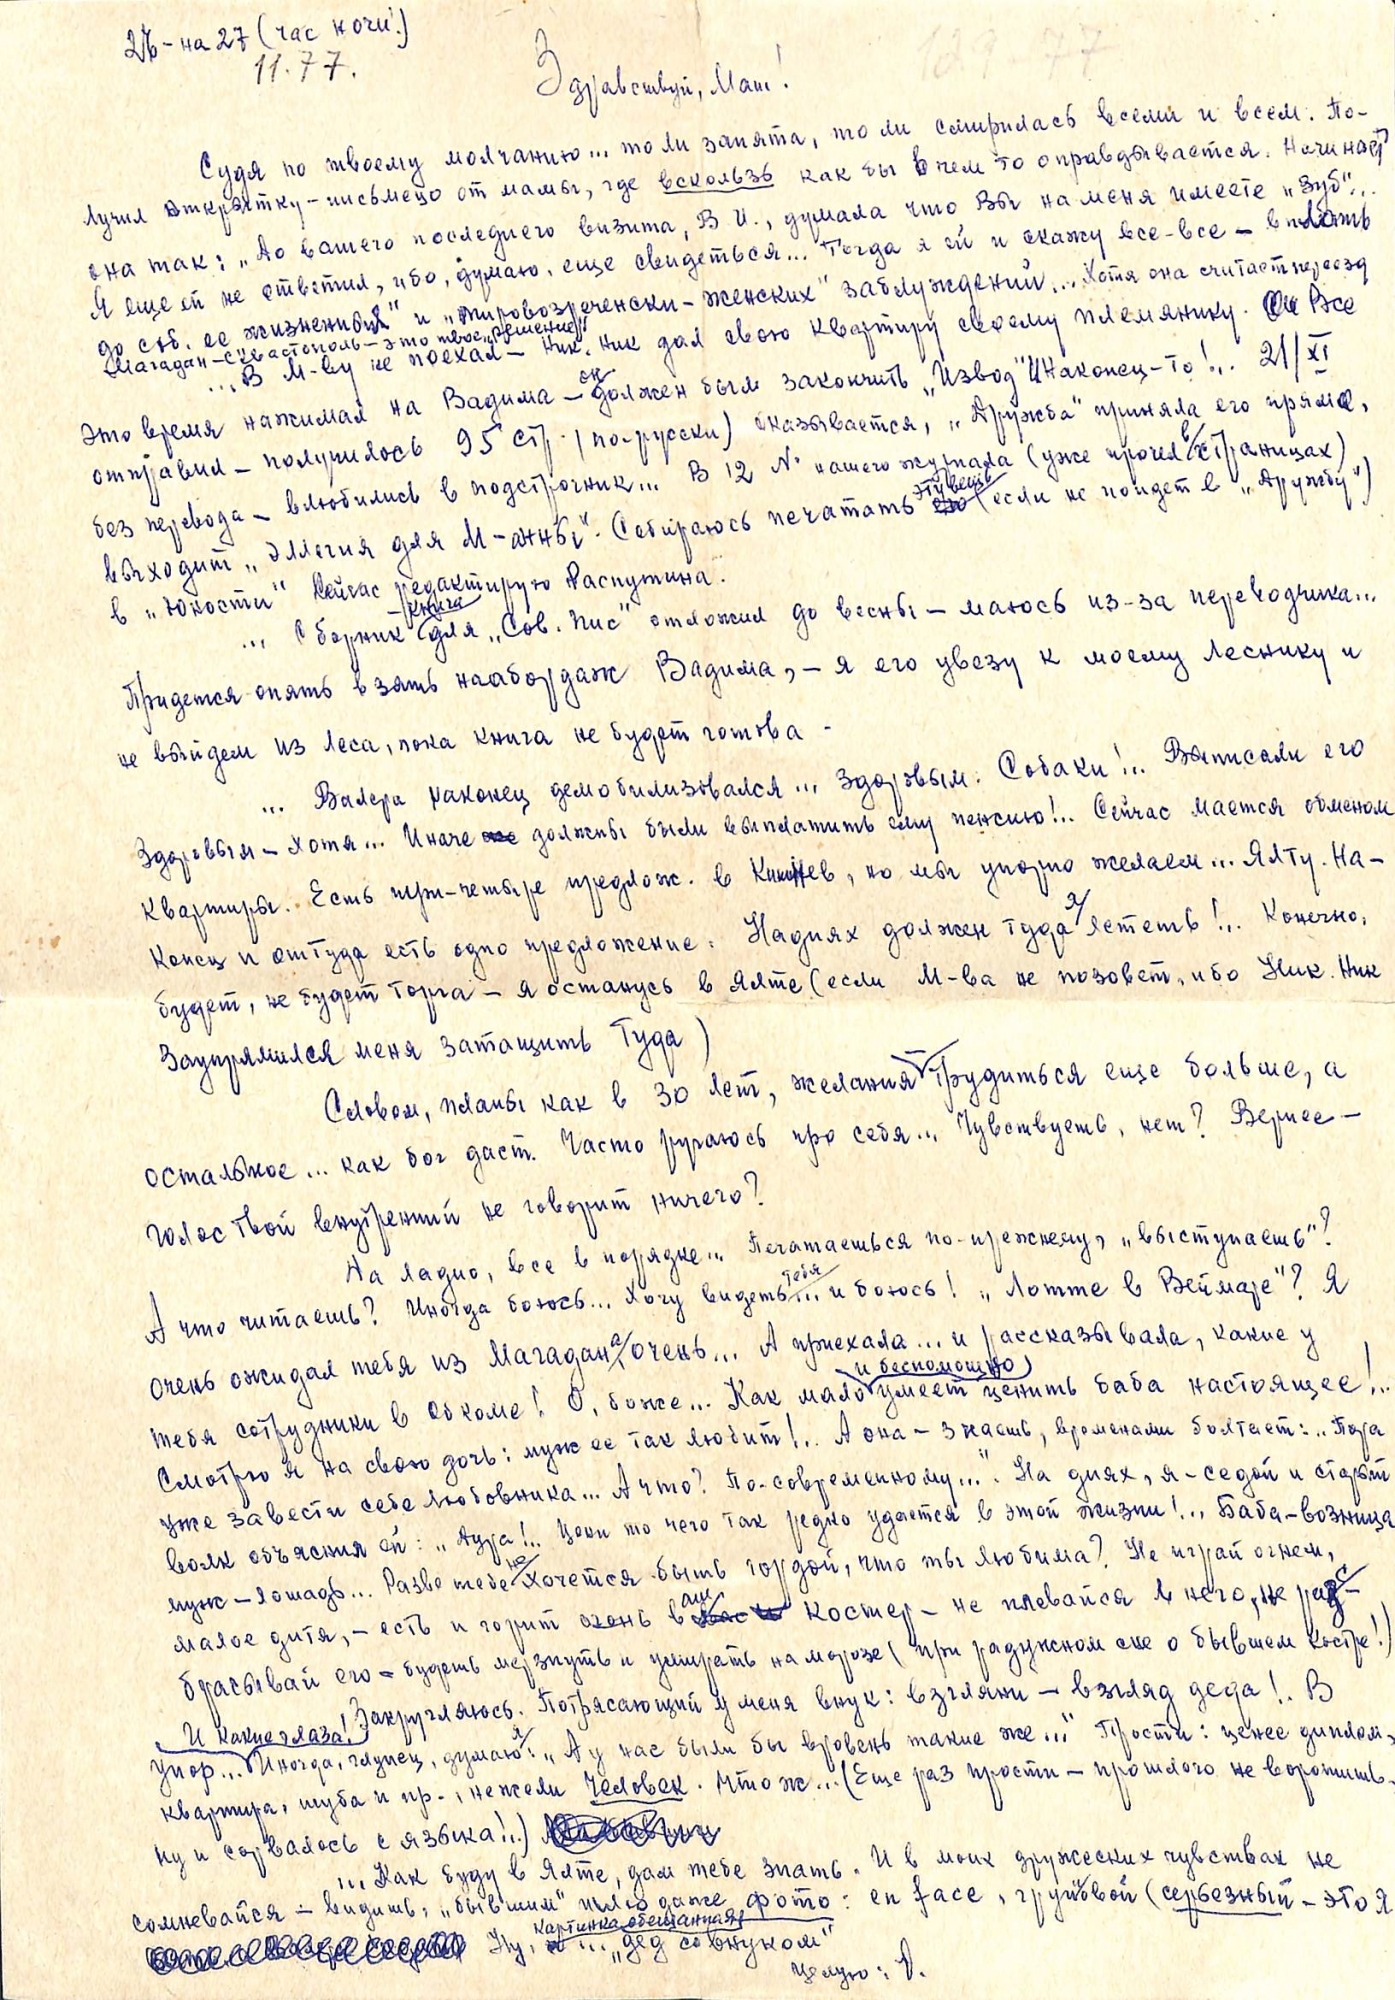 26-на 27 (час ночи!)
11.77.
Здравствуй, Маш!
Судя по твоему молчанию... то ли занята, то ли смирилась всеми и всем. По-
лучил открытку-письмецо от мамы, где вскользь как бы в чем то оправдывается. Начинает
она так: „До вашего последнего визита, В.И., думала что Вы на меня имеете „Зуб"...
Я еще ей не ответил, ибо, думаю, еще свидеться... Тогда я ей и скажу все-все - вплоть
до соб. ее жизненных" и „мировоззренчески-женских" заблуждений... Хотя она считает переезд
Магадан-Севастополь - это твое „решение"
... В М-ву не поехал - Ник. Ник дал свою квартиру своему племянику. Все
это время нажимал на Вадима - он должен был закончить „Извод" И наконец-то!.. 21/XI
отправил - получилось 95 стр. (по-русски) оказывается, „Дружба" приняла его прямо,
без перевода - влюбились в подстрочник... В 12 № нашего журнала (уже прочел в страницах)
выходит „Эллегия для М-анны". Собираюсь печатать эту вещь (если не пойдет в „Дружбу")
в „Юности" Сейчас редактирую Распутина.
... Сборник - книга для „Сов. Пис" отложил до весны - маюсь из-за переводчика...
Придется опять взять наабордаж Вадима, - я его увезу к моему леснику и
не выйдем из леса, пока книга не будет готова -
... Валера наконец демобилизовался... здоровым. Собаки!.. Выписали его
здоровым - хотя... Иначе должны были выплатить ему пенсию!.. Сейчас мается обменом
квартиры.. Есть три-четыре предлож. в Кишинев, но мы упорно желаем... Ялту. На-
конец и оттуда есть одно предложение. Надиях должен туда я лететь!.. Конечно,
будет, не будет торга - я останусь в Ялте (если М-ва не позовет, ибо Ник. Ник
заупрямился меня затащить туда)
Словом, планы как в 30 лет, желания трудиться еще больше, а
остальное... как бог даст. Часто ругаюсь про себя... Чувствуешь, нет? Вернее -
голос твой внутренний не говорит ничего?
Да ладно, все в порядке... Печатаешься по-прежнему, „выступаешь"?
А что читаешь? Иногда боюсь... Хочу видеть тебя... и боюсь! „Лотте в Веймаре"? Я
очень ожидал тебя из Магадана, очень... А приехала... и рассказывала, какие у
тебя сотрудники в Обкоме! О, боже... Как мало и беспомощно умеет ценить баба настоящее!..
Смотрю я на свою дочь: муж ее так любит!.. А она - знаешь, временами болтает: „Пора
уже завести себе любовника... А что? По-современному...". На днях, я - седой и старый
волк объяснил ей: „Аура!.. Цени то чего так редко удается в этой жизни!... Баба-возница
муж - лошадь... Разве тебе не хочется быть гордой, что ты любима? Не играй огнем,
малое дитя, - есть и горит огонь ваш костер - не плевайся в него, не рас-
брасывай его - будешь мерзнуть и умирать на морозе (при радужном сне о бывшем костре!)
Закругляюсь. Потрясающий у меня внук: взгляни - взгляд деда!.. В
упор... И какие глаза! Иногда, глупец, думаю я: „А у нас были бы вровень такие же..." Прости: ценее диплом,
квартира, шуба и пр., нежели человек. Что ж... (Еще раз прости - прошлого не воротишь.
ну и сорвалось с языка!..)
... Как буду в Ялте, дам тебе знать. И в моих дружеских чувствах не
сомневайся - видишь, „бывшим" шлю даже фото: en face, групповой (серьезный - это я
Ну, ... картинка обещанная „дед со внуком"
Целую: В.